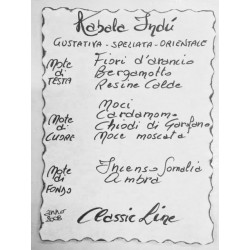 Kabala Indú
GUSTATIVA - SPEZIATA - ORIENTALE
Note di TESTA
Fiori d'arancio
Bergamotto
Resine Calde
Note di CUORE
Noci
Cardamomo
Chiodi di Garofano
Noce moscata
Note di FONDO
Incenso Somalia
Ambra
anno 2008
Classic Line